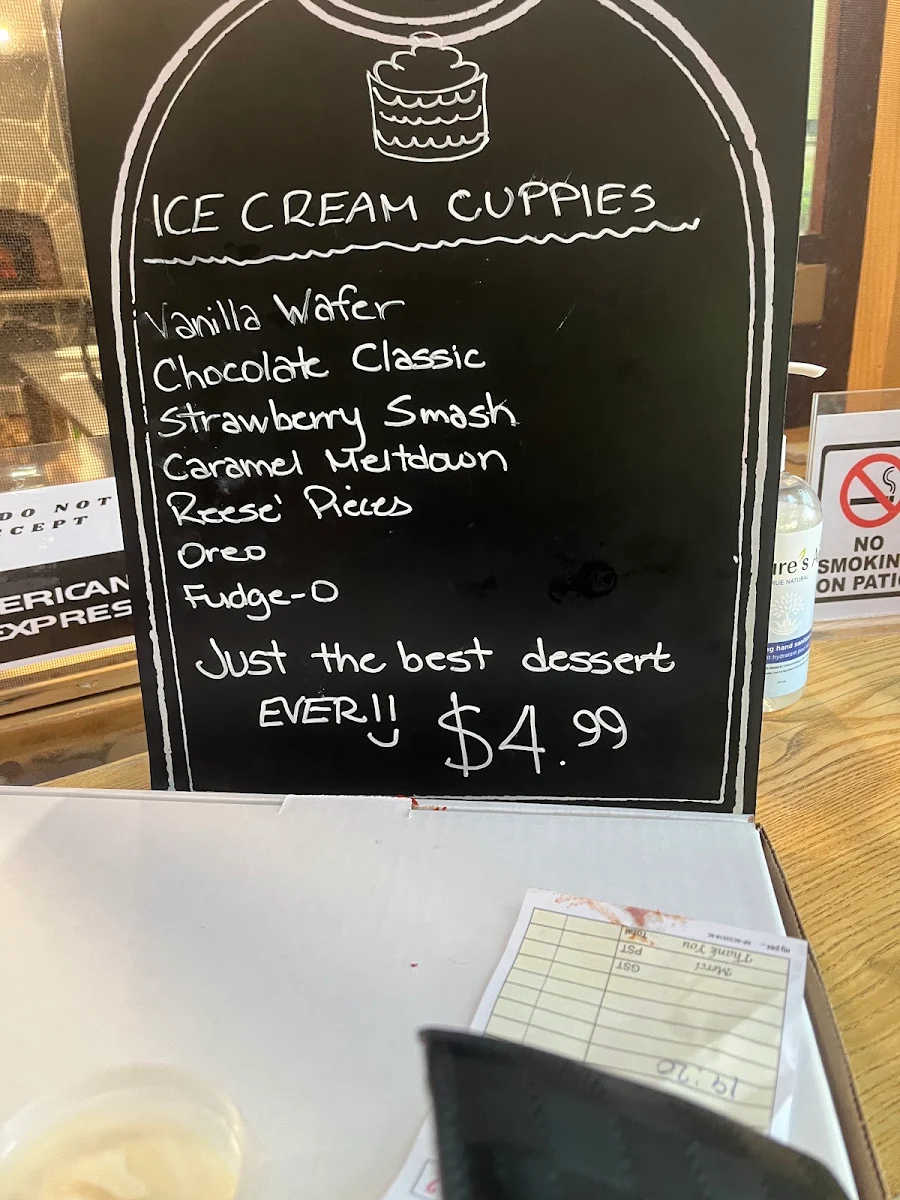 ICE CREAM CUPPIES
Vanilla Wafer
Chocolate Classic
Strawberry Smash
Caramel Meltdown
Reese' Pieces
Oreo
Fudge-O
Just the best dessert
EVER!!
$4.99
DO NOT
CEPT
ERICAN
EXPRES
ure's A
RUE NATURAL
ng hand sanit
NO
SMOKIN
ON PATI
Total
PST
GST
Thank You
Merci
19:20